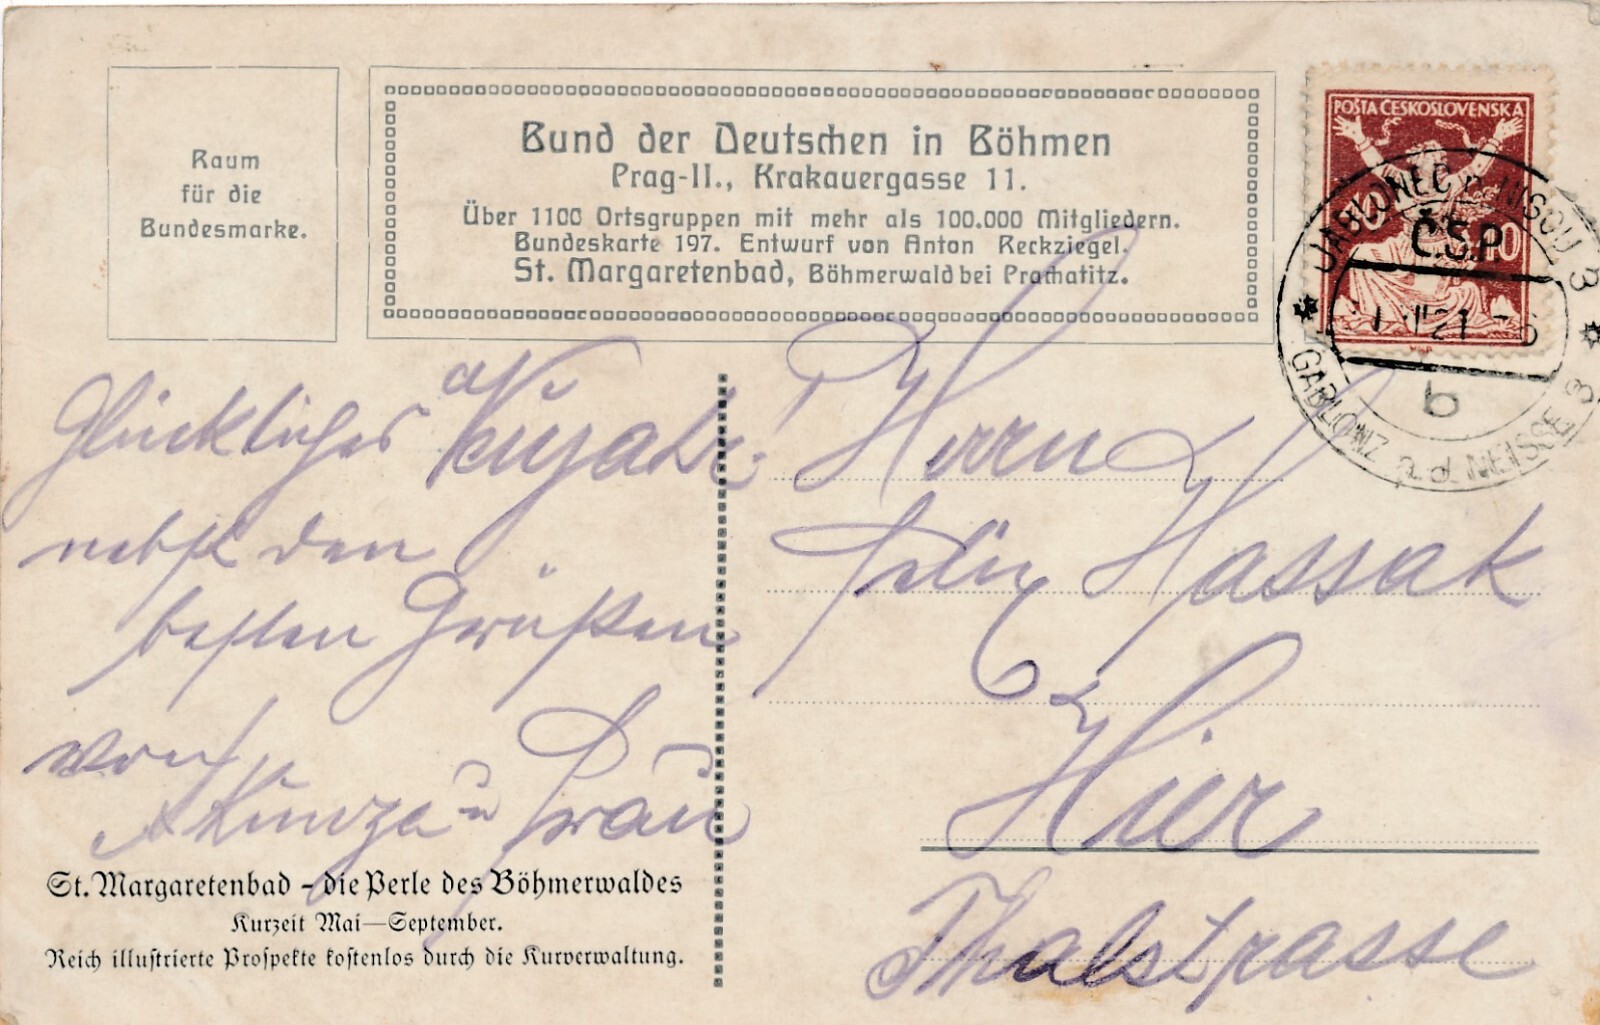 Raum
für die
Bundesmarke.
Bund der Deutschen in Böhmen
Prag-II., Krakauergasse 11.
Über 1100 Ortsgruppen mit mehr als 100.000 Mitgliedern.
Bundeskarte 197. Entwurf von Anton Reckziegel.
St. Margaretenbad, Böhmerwald bei Prachatitz.
POŠTA ČESKOSLOVENSKA
JABLONEC n. NISOU 3
Č.S.P.
21
b
GABLONZ a. d. NEISSE 3
Glückliches Neujahr!
nebst den
besten Grüßen
von
Kunze u Frau
Herrn
Felix Hassak
Hier
Thalstrasse
St. Margaretenbad – die Perle des Böhmerwaldes
Kurzeit Mai—September.
Reich illustrierte Prospekte kostenlos durch die Kurverwaltung.